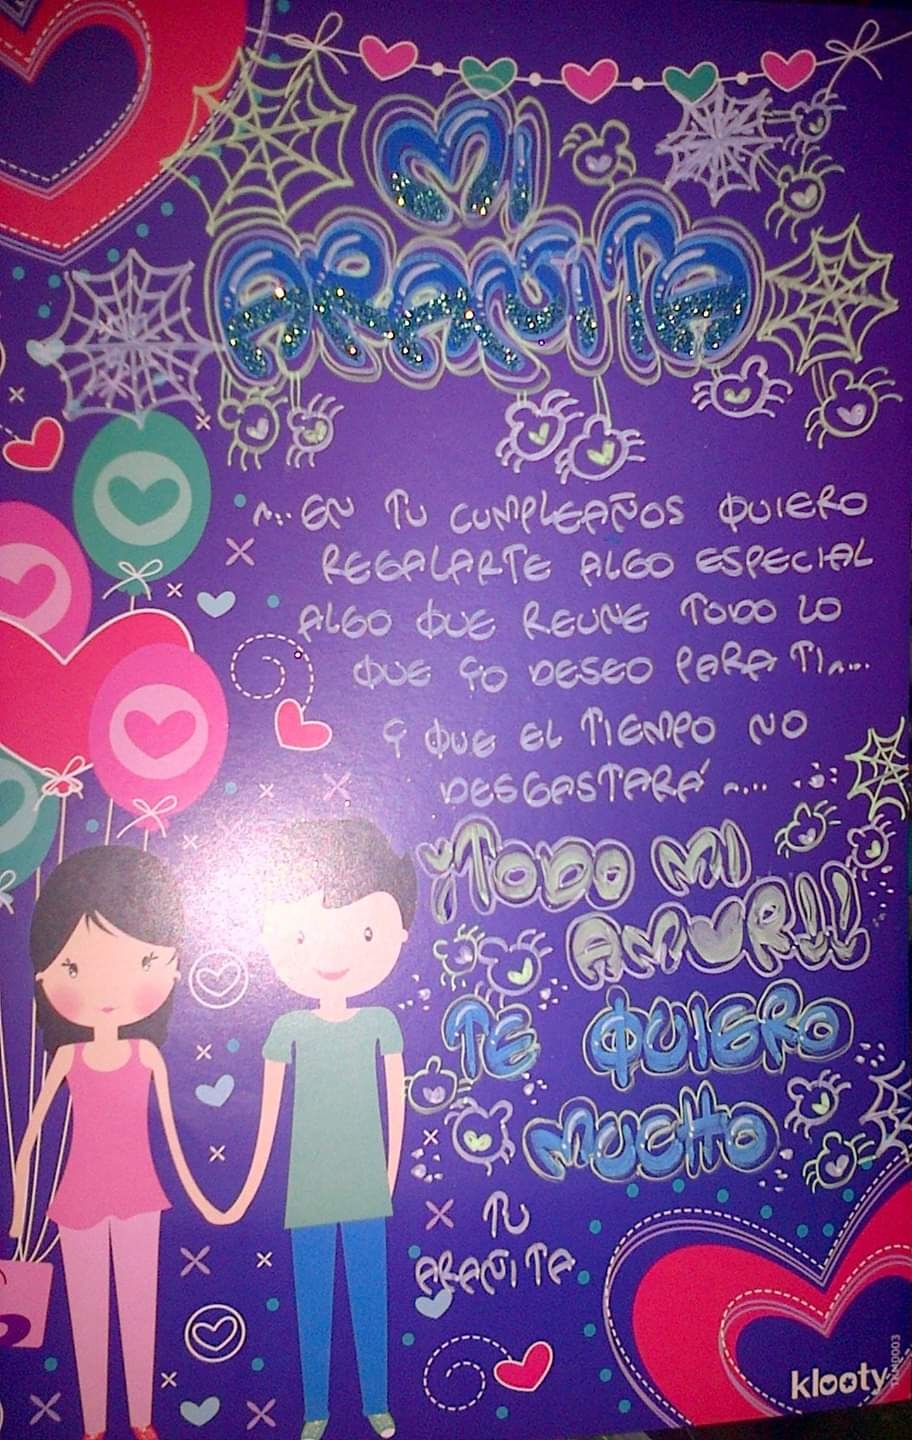 MI
ARAÑITA
... EN TU CUMPLEAÑOS QUIERO
REGALARTE ALGO ESPECIAL
ALGO QUE REUNE TODO LO
QUE YO DESEO PARA TI...
Y QUE EL TIEMPO NO
DESGASTARÁ ...
¡TODO MI
AMOR!!
TE QUIERO
MUCHO
TU
ARAÑITA
klooty